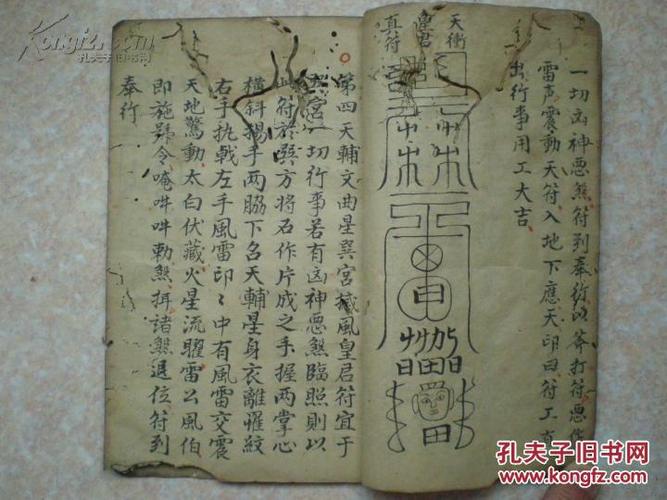 一切凶神悪煞符到奉行以斧打符悪
雷声震動天符入地下應天印曰符工
出行事用工大吉
天衝
真符
第四天輔文曲星巽宮撼風皇君符宜于
宮一切行事若有凶神悪煞臨照則以
符於巽方將石作片成之手握两掌心
横斜揚乎两脇下名天輔星身衣離羅紋
右手执戟左手風雷印〻中有風雷交震
天地驚動太白伏藏火星流曜雷公風伯
即施號令唵吽吽勅煞揖諸煞退位符到
奉行
Kongfz.com
孔夫子旧书网
孔夫子旧书网
www.kongfz.com